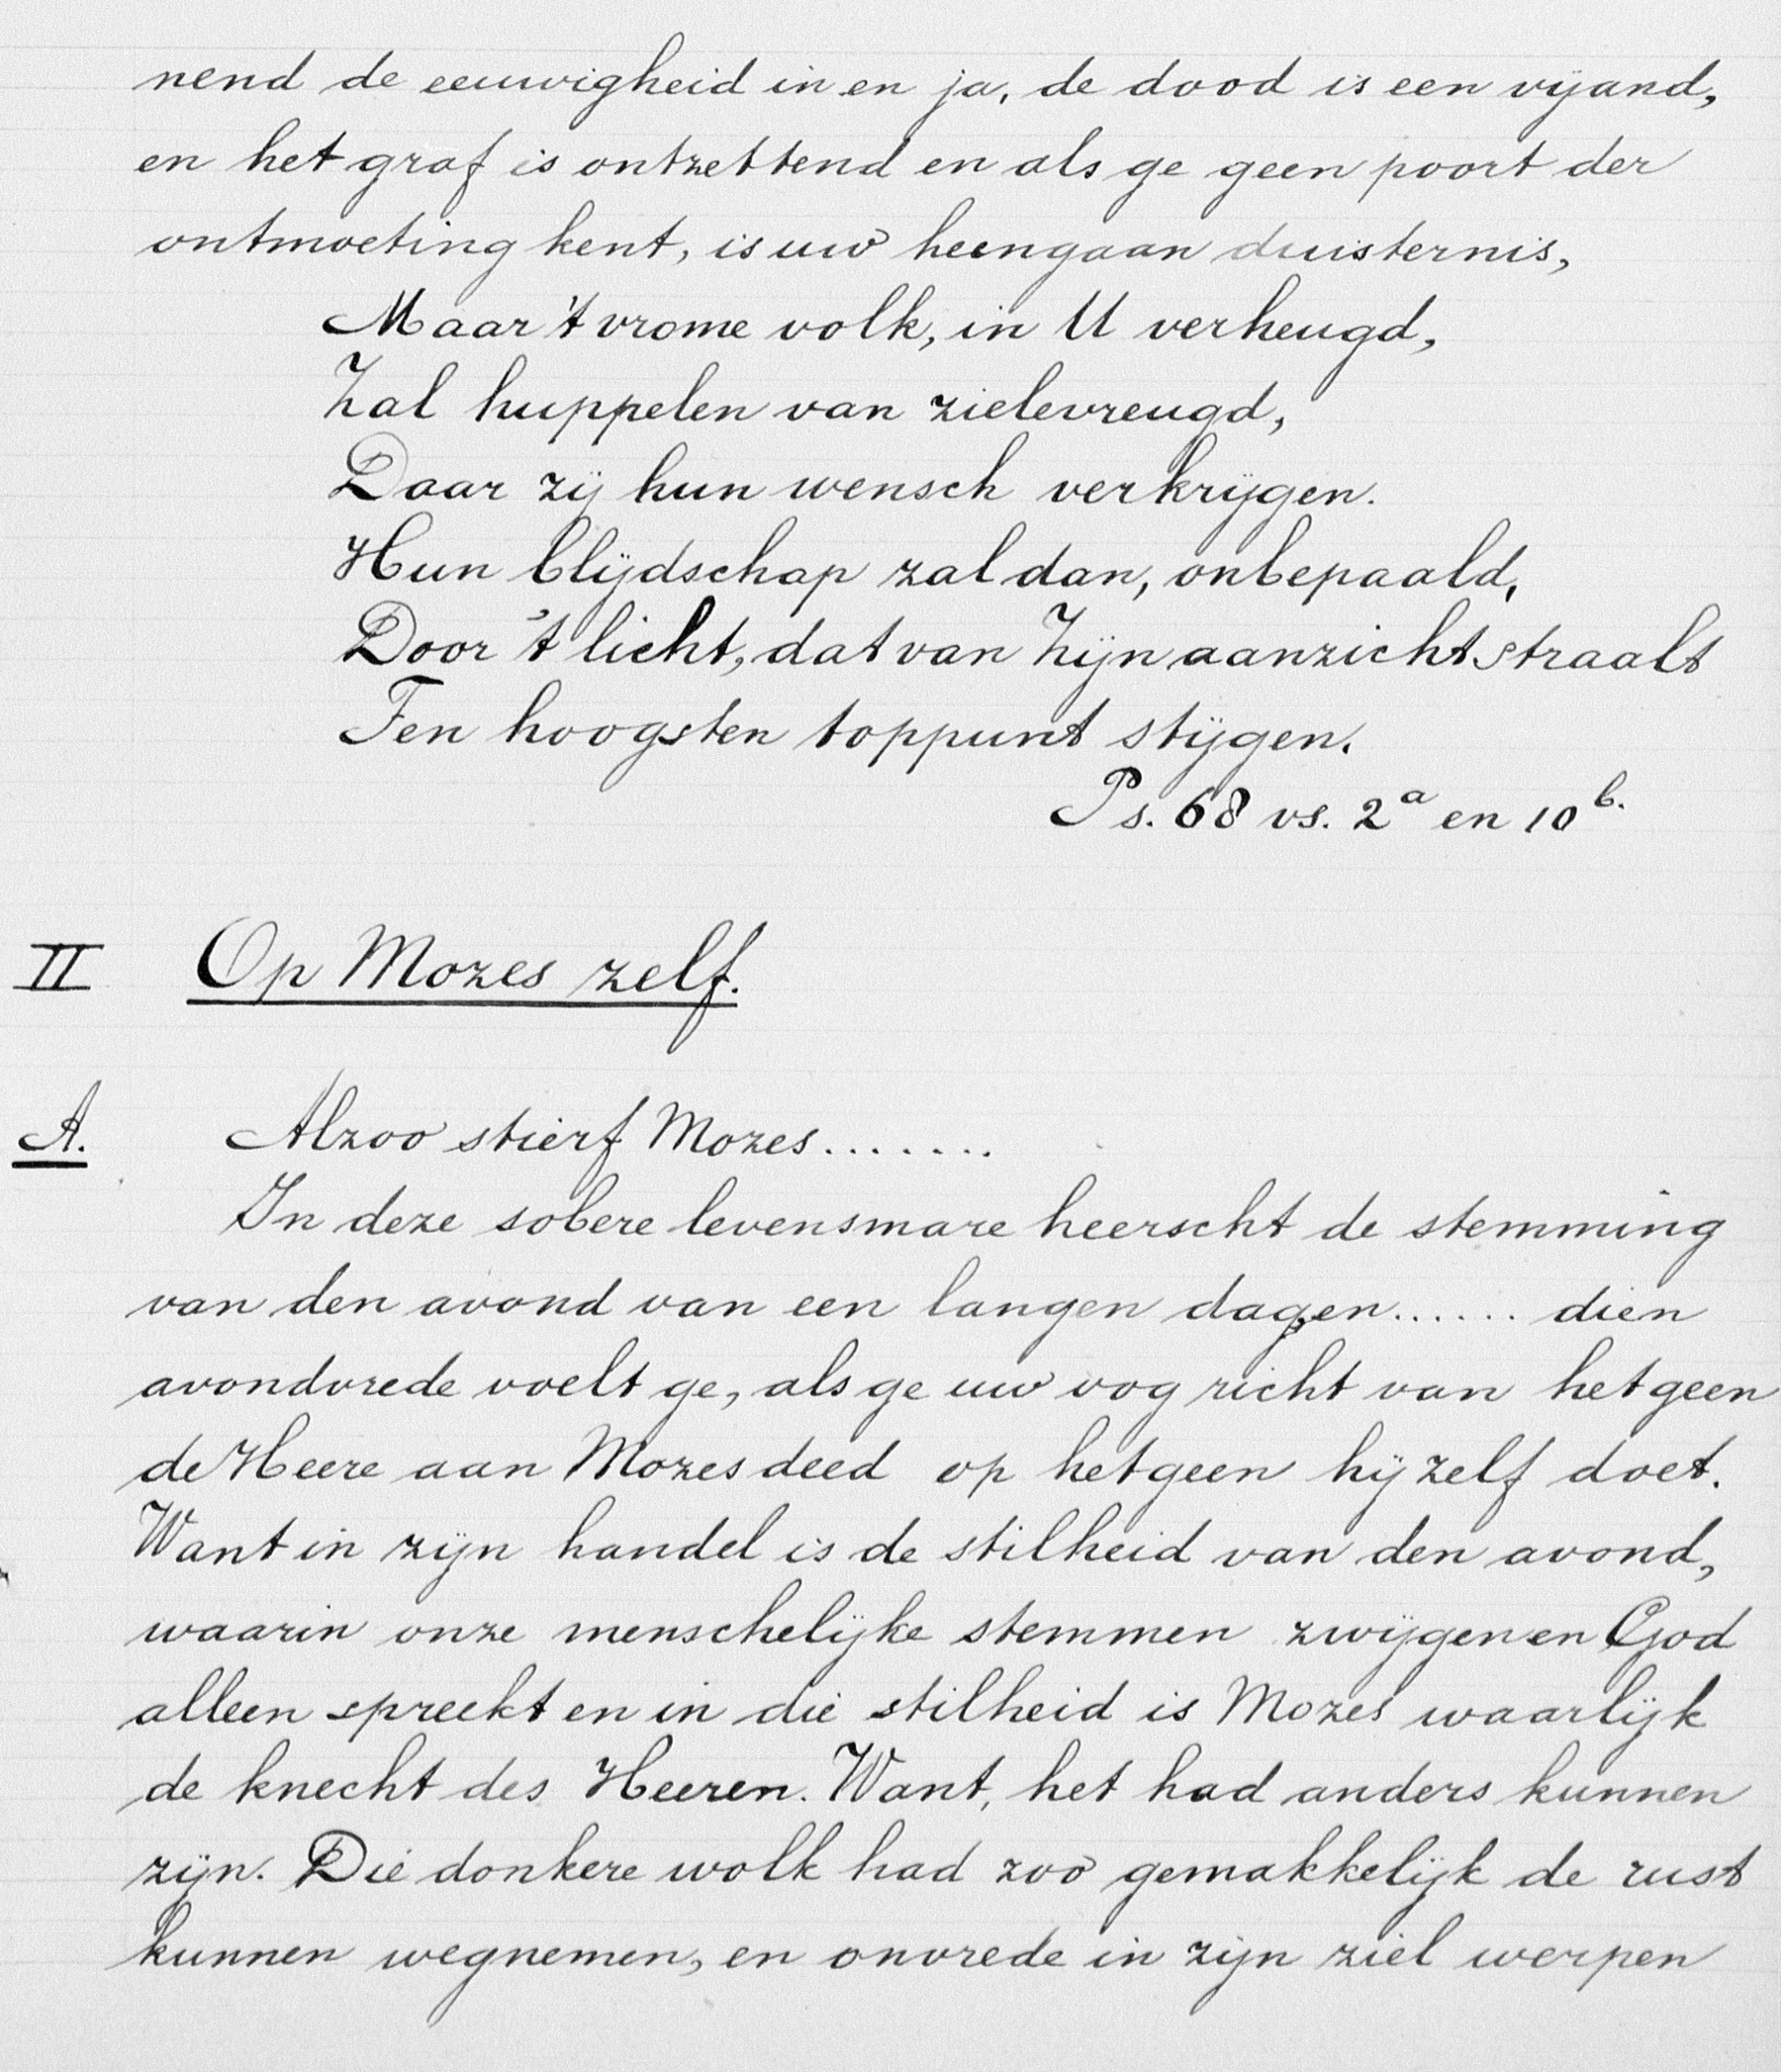 nend de eeuwigheid in en ja, de dood is een vijand,
en het graf is ontzettend en als ge geen poort der
ontmoeting kent, is uw heengaan duisternis,
Maar 't vrome volk, in U verheugd,
Zal huppelen van zielevreugd,
Daar zij hun wensch verkrijgen.
Hun blijdschap zal dan, onbepaald,
Door 't licht, dat van Zijn aanzicht straalt
Ten hoogsten toppunt stijgen.
Ps. 68 vs. 2a en 10b.
II Op Mozes zelf.
A. Alzoo stierf Mozes.......
In deze sobere levensmare heerscht de stemming
van den avond van een langen dagen...... dien
avondvrede voelt ge, als ge uw oog richt van hetgeen
de Heere aan Mozes deed op hetgeen hij zelf doet.
Want in zijn handel is de stilheid van den avond,
waarin onze menschelijke stemmen zwijgen en God
alleen spreekt en in die stilheid is Mozes waarlijk
de knecht des Heeren. Want, het had anders kunnen
zijn. Die donkere wolk had zoo gemakkelijk de rust
kunnen wegnemen, en onvrede in zijn ziel werpen